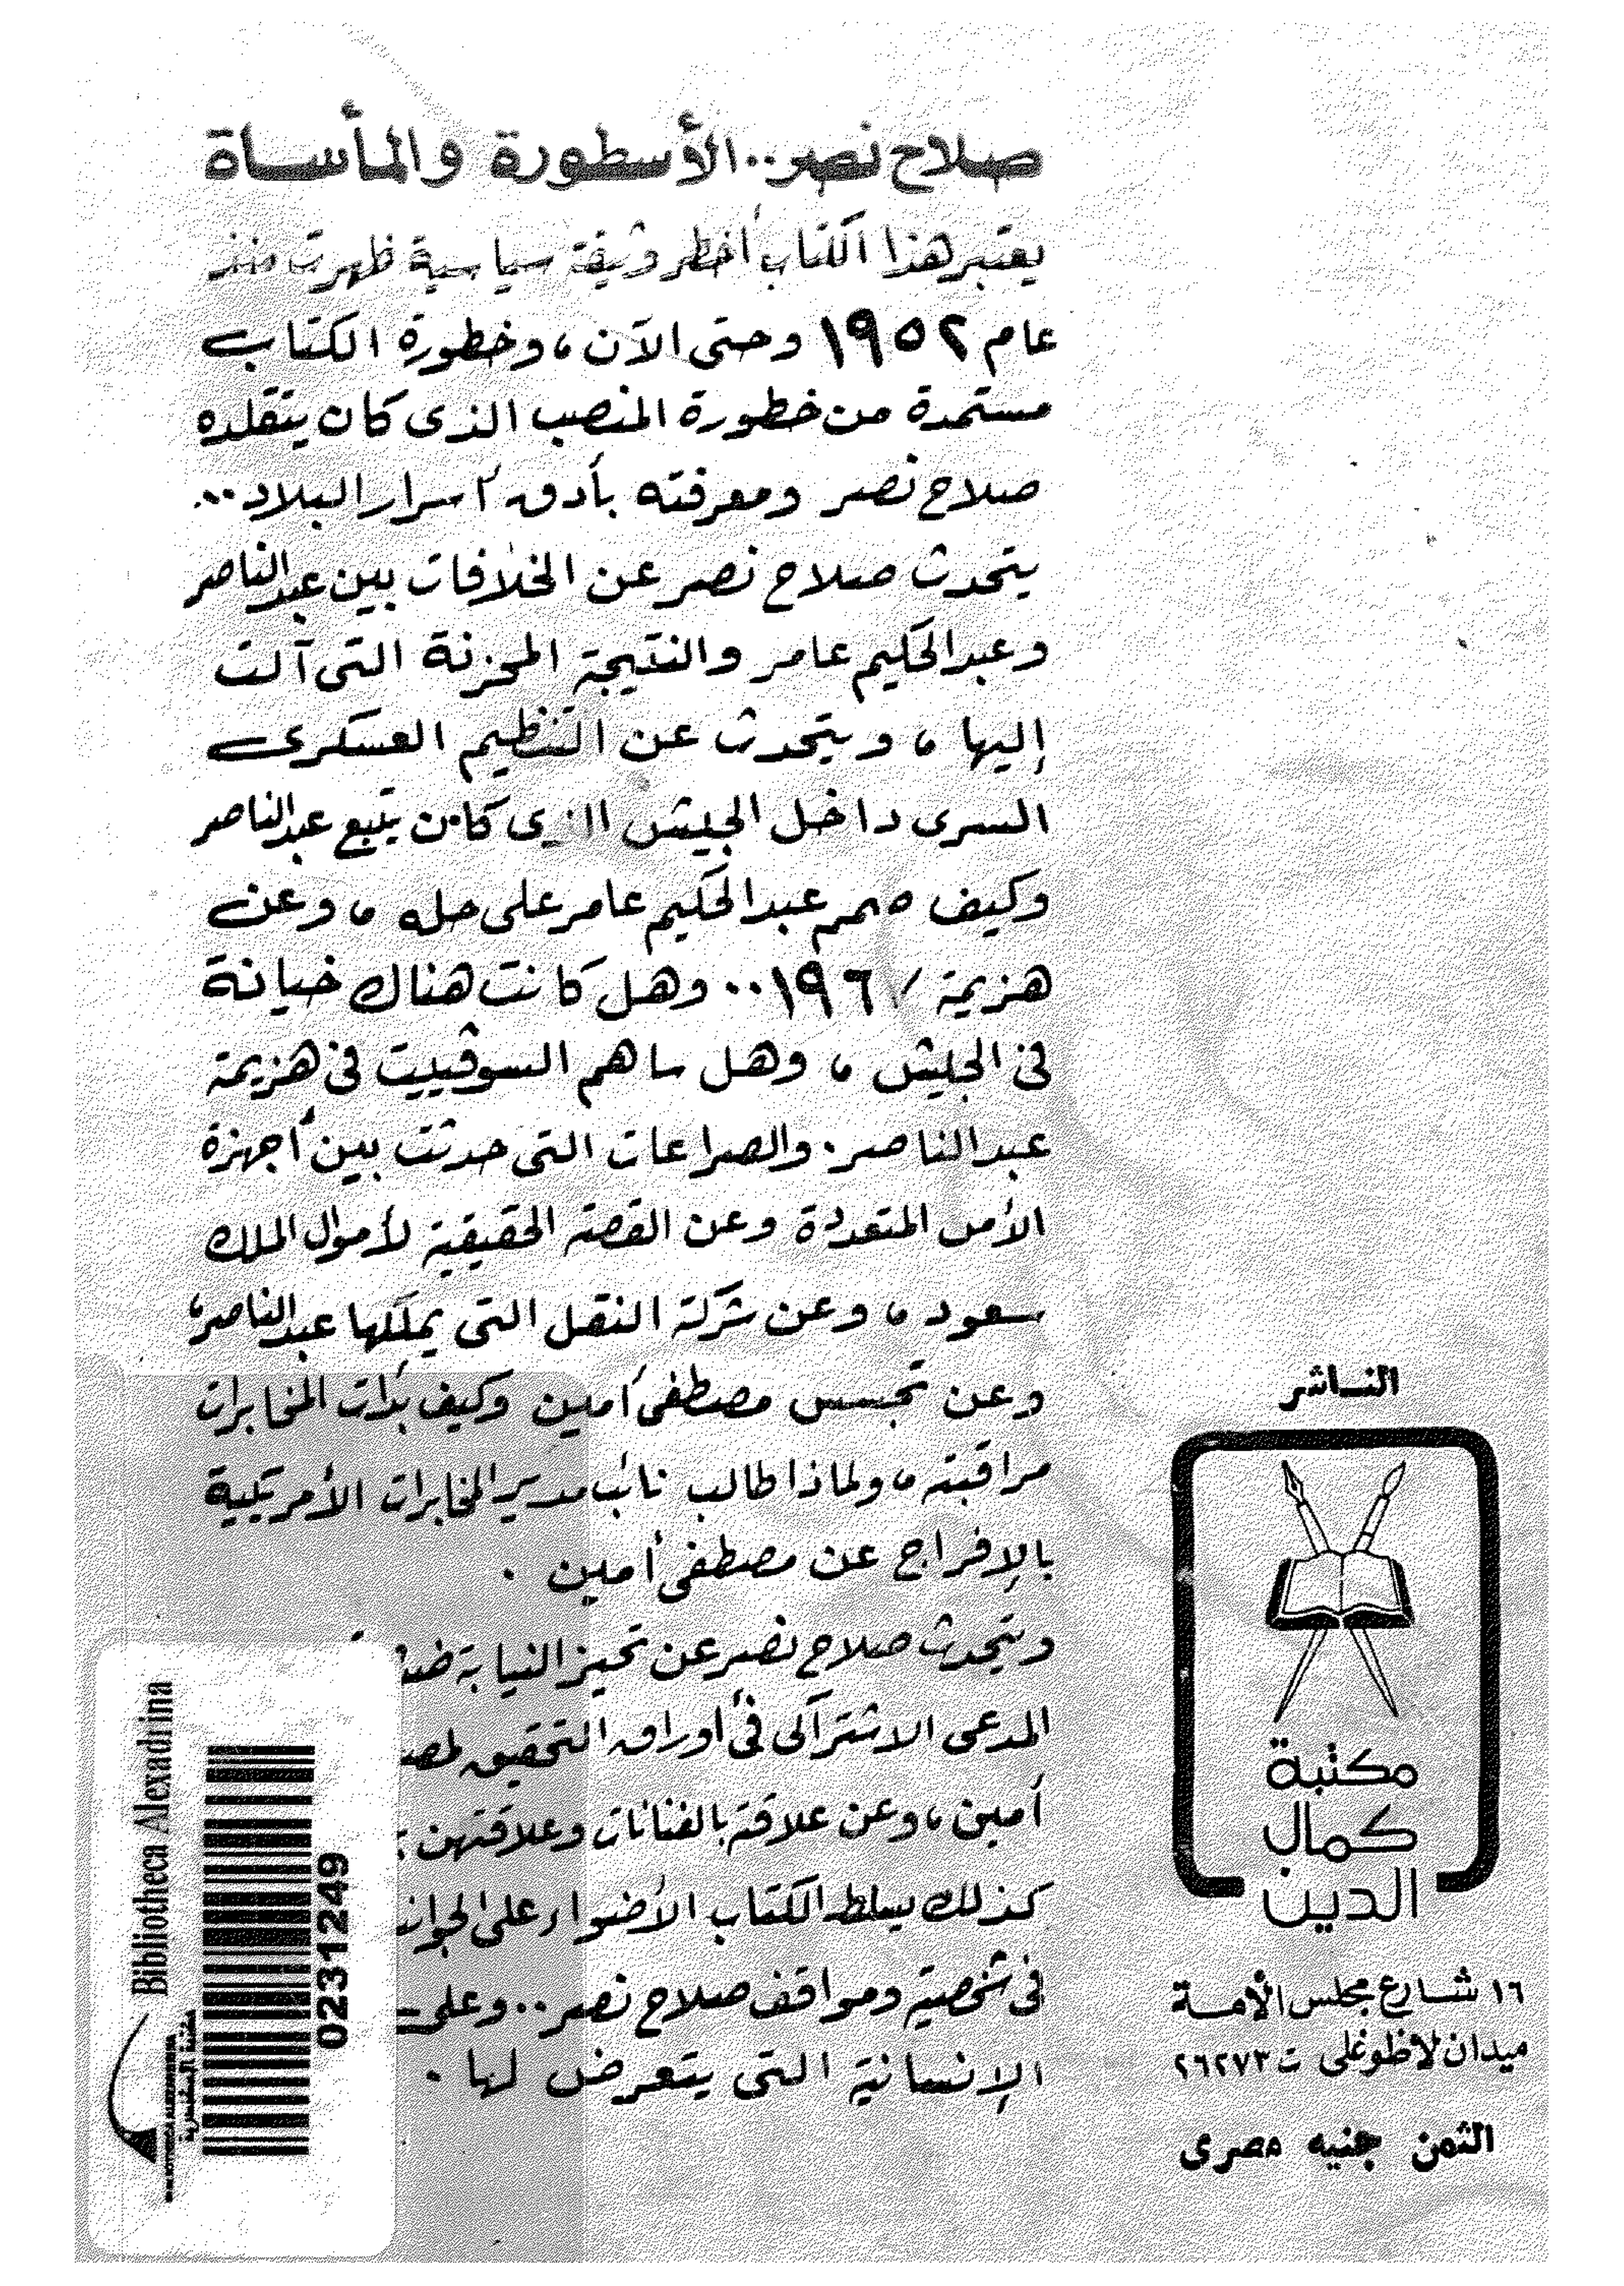 صلاح نصر.. الأسطورة والمأساة
يعتبر هذا الكتاب أخطر وثيقة سياسية ظهرت منذ
عام ١٩٥٢ وحتى الآن، وخطورة الكتاب
مستمدة من خطورة المنصب الذى كان يتقلده
صلاح نصر ومعرفته بأدق أسرار البلاد...
يتحدث صلاح نصر عن الخلافات بين عبدالناصر
وعبدالحكيم عامر والنتيجة المحزنة التى آلت
إليها، ويتحدث عن التنظيم العسكرى
السرى داخل الجيش الذى كان يتبع عبدالناصر
وكيف صمم عبدالحكيم عامر على حله، وعن
هزيمة ١٩٦٧.. وهل كانت هناك خيانة
فى الجيش، وهل ساهم السوڤييت فى هزيمة
عبدالناصر. والصراعات التى حدثت بين أجهزة
الأمن المتعددة وعن القصة الحقيقية لأموال الملك
سعود، وعن شركة النقل التى يملكها عبدالناصر،
وعن تجسس مصطفى أمين وكيف بدأت المخابرات
مراقبته، ولماذا طالب نائب مدير المخابرات الأمريكية
بالإفراج عن مصطفى أمين.
ويتحدث صلاح نصر عن تحيز النيابة
المدعى الاشتراكى فى أوراق التحقيق
أمين، وعن علاقة بالفنانات وعلاقتهن
كذلك يسلط الكتاب الأضواء على
فى شخصية ومواقف صلاح نصر.. وعلى
الإنسانية التى يتعرض لها.
الناشر
مكتبة
كمال
الدين
١٦ شارع مجلس الأمة
ميدان لاظوغلى ت ٢٦٢٧٣
الثمن جنيه مصرى
Bibliotheca Alexadrina
0231249
مكتبة الإسكندرية